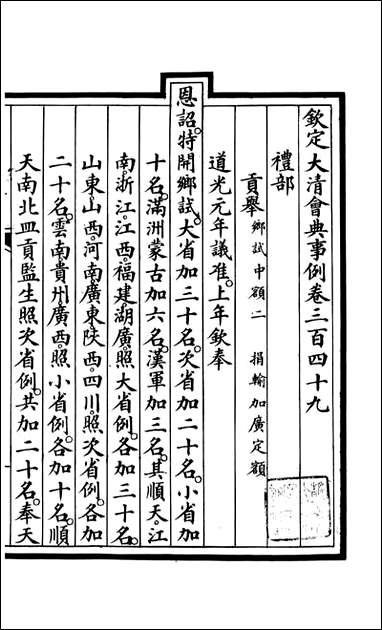 欽定大清會典事例卷三百四十九
禮部
貢舉鄉試中額二 捐輸加廣定額
道光元年議准。上年欽奉
恩詔。特開鄉試。大省加三十名。次省加二十名。小省加
十名。滿洲蒙古加六名。漢軍加三名。其順天。江
南。浙江。江西。福建。湖廣。照大省例。各加三十名。
山東。山西。河南。廣東。陝西。四川。照次省例。各加
二十名。雲南。貴州。廣西。照小省例。各加十名。順
天南北皿貢監生照次省例。共加二十名。奉天